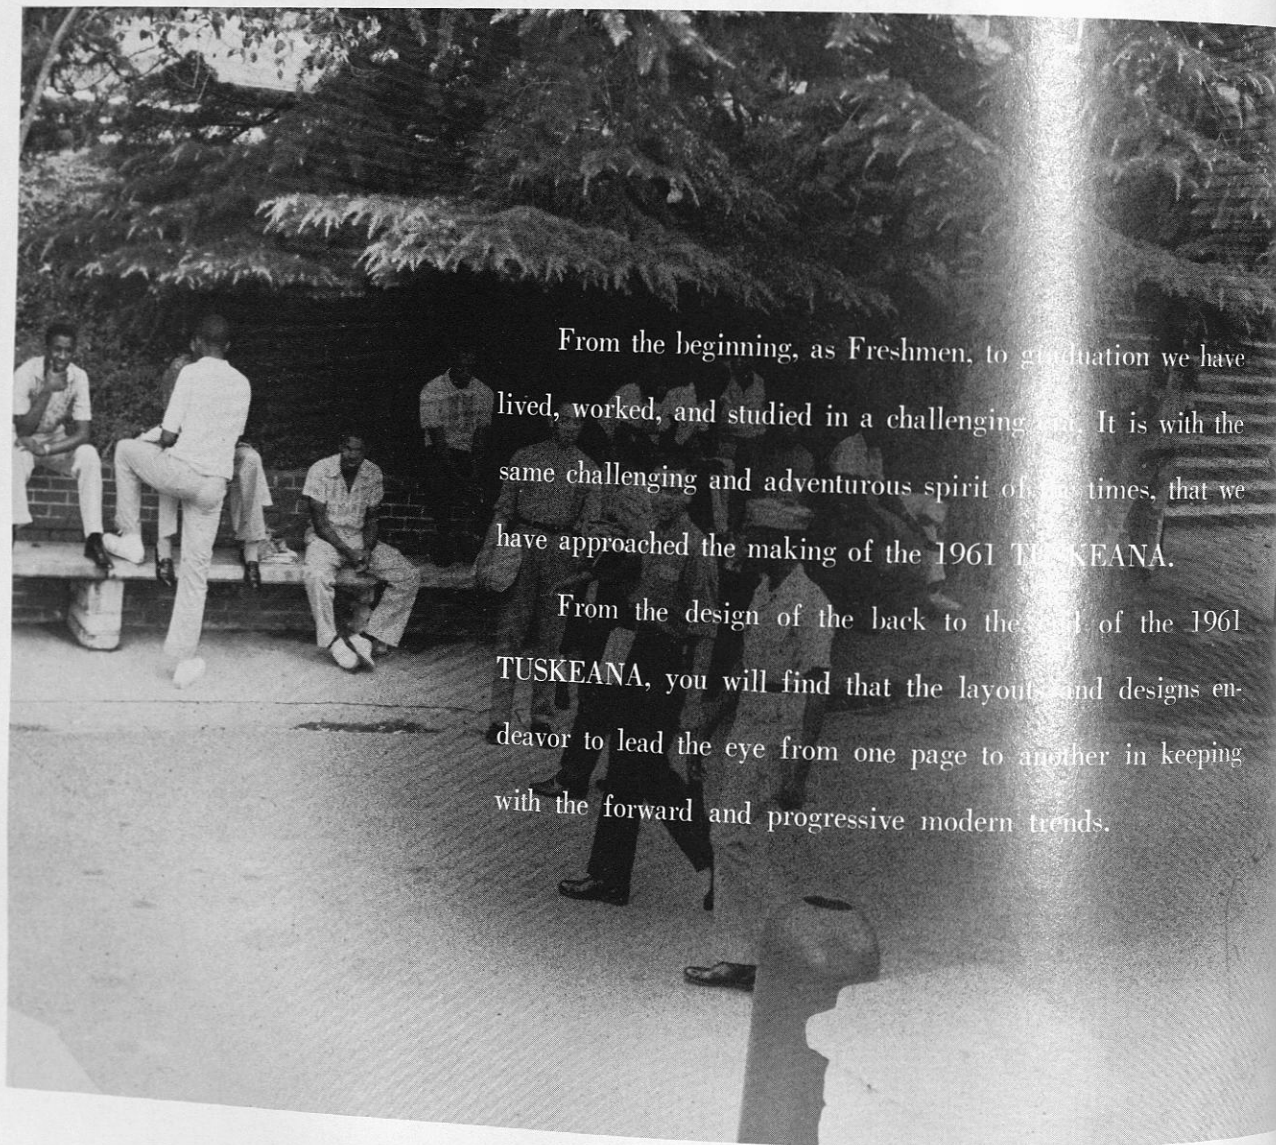 From the beginning, as Freshmen, to graduation we have
lived, worked, and studied in a challenging era. It is with the
same challenging and adventurous spirit of the times, that we
have approached the making of the 1961 TUSKEANA.
From the design of the back to the end of the 1961
TUSKEANA, you will find that the layouts and designs en-
deavor to lead the eye from one page to another in keeping
with the forward and progressive modern trends.